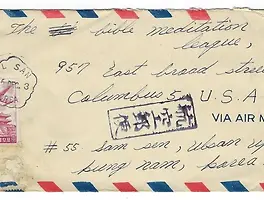 The bible meditation
league,
957 East broad stre
Columbus 5 U.S.A
航空郵便
VIA AIR M
#55 sam sen, ubsan up
hung nam, korea